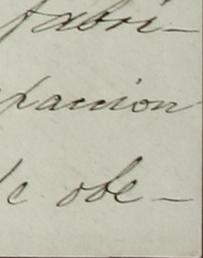 fabri-
paccion
de obe-